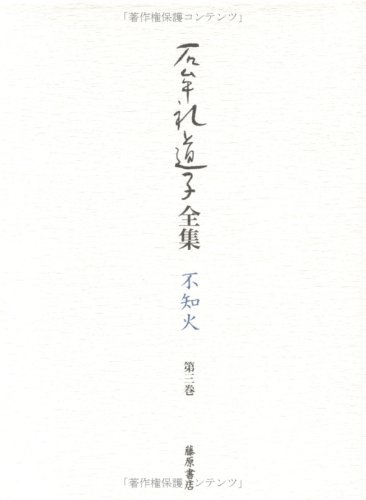 「著作権保護コンテンツ」
石牟礼道子
全集
不知火
第三巻
藤原書店
「著作権保護コンテンツ」